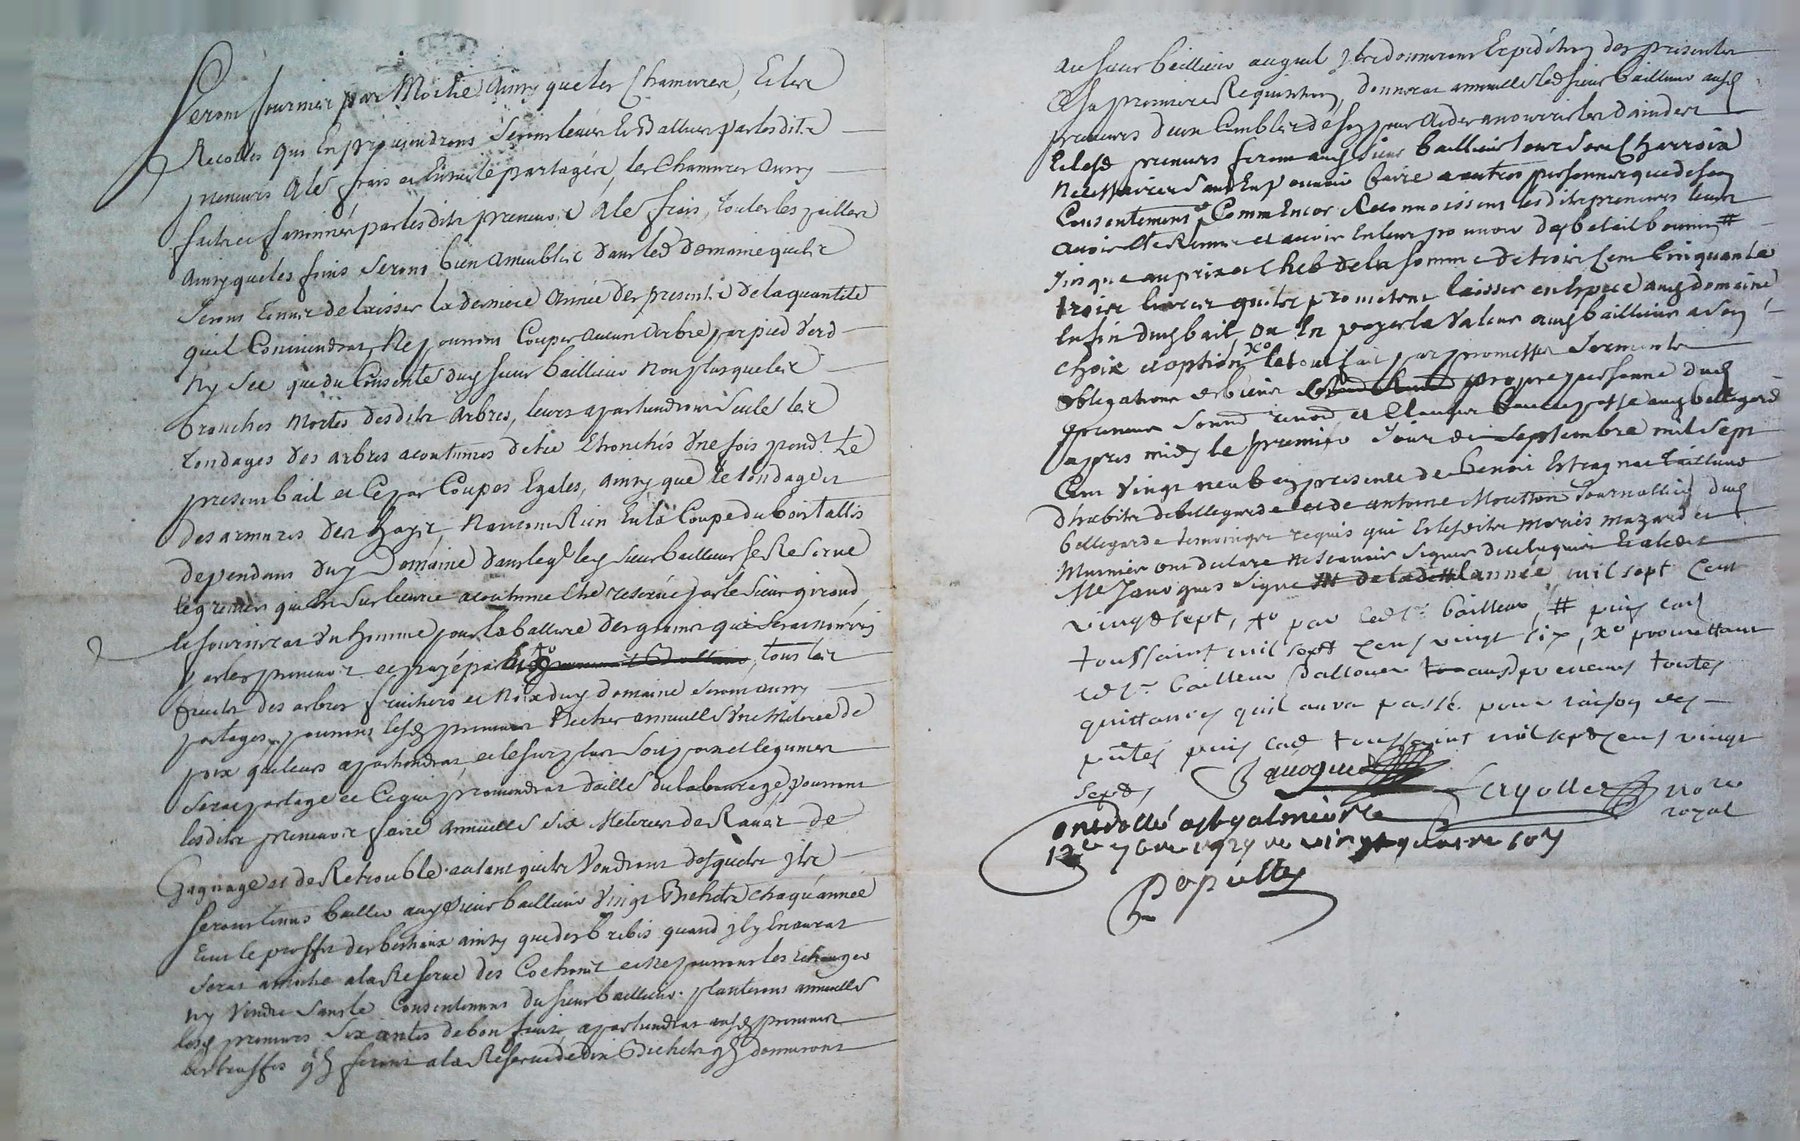 Seront fournier par Moitié Ainsy que les Chamures, Et les
Recoltes qui En proujendront Seront leuée Et Battues par lesdits
preneurs A les frais et Ensuite partagées, les Chamures ausy
par lesdits preneurs A les frais, toutes les pailles
Ainsy que les foins Seront bien Ameublie dans led domaine qu'ils
Seront tenus de laisser la derniere Année des presentes de la quantité
quil Conviendrat, Ne pourront Couper aucun Arbre par pied Verd
Ny Sec que du Consente dud sieur bailleur Non plus que les
branches Mortes desdits Arbres, leurs apartiendront Seules les
tondages des arbres acoutumes detre Etronchés Une fois pendt Le
present bail et Ce par Coupes Egales, ainsy que le tondage
des armures des hayes, Nauront Rien En la Coupe du bois tallis
dependans dud Domaine dans leql led sieur bailleur Se Reserve
le grenier quil En Sur lecurie acoutumé Etre reservé par le Sieur giroud
le fournirat Un homme pour la batture des grains qui Serat nourris
par les preneurs et payé par tous les
fruits des arbres fruitiers et Noix dud domaine Seront ausy
partages pourront lesd preneurs Recher annuellt Une Meterée de
poix qui leurs apartiendrat, et le surplus Soit poix et legumes
Serat partagé et Ce qui proviendrat daille du labourage, pourront
lesdits preneurs faire Annuellt Six Meterees de Raves de
Gagnage et de Retrouble autant quils Voudront desquels ils
Seront tenus bailler aud Sieur bailleur Vingt Bichets chaq'année
tout le proffit des bestiaux ainsy que des brebis quand il y En aurat
Serat moitié a la Reserve des Cochons et Ne pourront les Echanger
ny Vendre Sans le Consentement du sieur bailleur. planteront annuellt
lesd preneurs Six antes de bon fruit, apartiendrat ausd preneurs
les truffes qls feront a la Reserve de dix Bichets qls donneront
au sieur bailleur auquel ils donneront Expedition des presentes
A sa premiere Requisition, donnerat annuellt led sieur bailleur ausd
preneurs deux
Et lesd preneurs feront aud sieur bailleur tous Ses Charroix
Necessaires Sans En pouvoir faire a autres personnes que de son
Consentement Comm Encor Reconnoissent lesdits preneurs leurs
avoir Eté Remis et avoir En leur pouvoir des betail bovins #
Jusque au prix et Cheb de la somme de trois Cent Cinquante
trois livres quils prometent laisser en Espece aud domaine
En fin dud bail ou En payer la Valeur aud bailleur a Son
choix et option Xo le tout fait par promesses Serments
obligations de biens propre personne dud
preneur Soumon renon et Clauses fait et passé aud bellegarde
apres midy le premier Jour de Septembre mil Sept
Cent Vingt neuf en presence de benoit Estragnat taillieur
d'habits de bellegarde et de antoine Mouttion Journallier dud
bellegarde temoings requis qui Et lesdits Mariés mazard et
Murnier ont declaré Ne Scavoir Signer de ce Enquis Et ledit
Me Janoques Signe l'année mil sept cent
vingt sept, +o par led sr bailleur, # puis lad
toussaint mil sept cent vingt six, Xo promettant
led sr bailleur dallouer ausd preneurs toutes
quittances quil aura passé pour raison des
puis lad toussaint mil sept cent vingt
sept
Janoques Fayolles nore
royal
Controllé a St galmier le
12e 7bre 1729 vingt quatre sols
Popullus